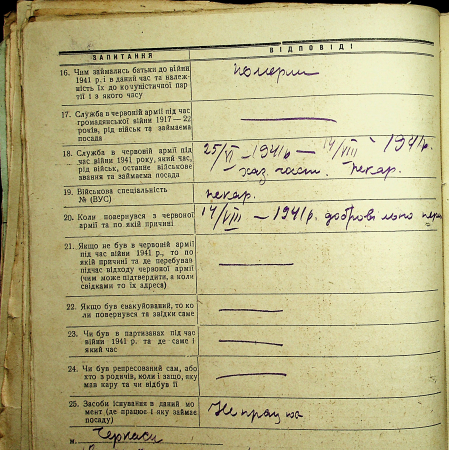 ЗАПИТАННЯ ВІДПОВІДІ
16. Чим займались батьки до війни
1941 р. і в даний час та належ-
ність їх до комуністичної пар-
тії і з якого часу
померли
17. Служба в червоній армії під час
громадянської війни 1917—22
років, рід військ та займаєма
посада
18. Служба в червоній армії під
час війни 1941 року, який час,
рід військ, останнє військове
звання та займаєма посада
25/VI – 1941р – 14/VIII – 1941р.
хаз. част. пекар.
19. Військова спеціальність
№ (ВУС)
пекар.
20. Коли повернувся з червоної
армії та по якій причині
14/VIII – 1941р. добровільно
21. Якщо не був в червоній армії
під час війни 1941 р., то по
якій причині та де перебував
підчас відходу червоної армії
(чим може підтвердити, а коли
свідками то їх адреса)
22. Якщо був євакуйований, то ко-
ли повернувся та звідки саме
23. Чи був в партизанах під час
війни 1941 р. та де саме і
який час
24. Чи був репресований сам, або
хто з родичів, коли і защо, яку
мав кару та чи відбув її
25. Засоби існування в даний мо-
мент (де працює і яку займає
посаду)
Не працюю
м. Черкаси